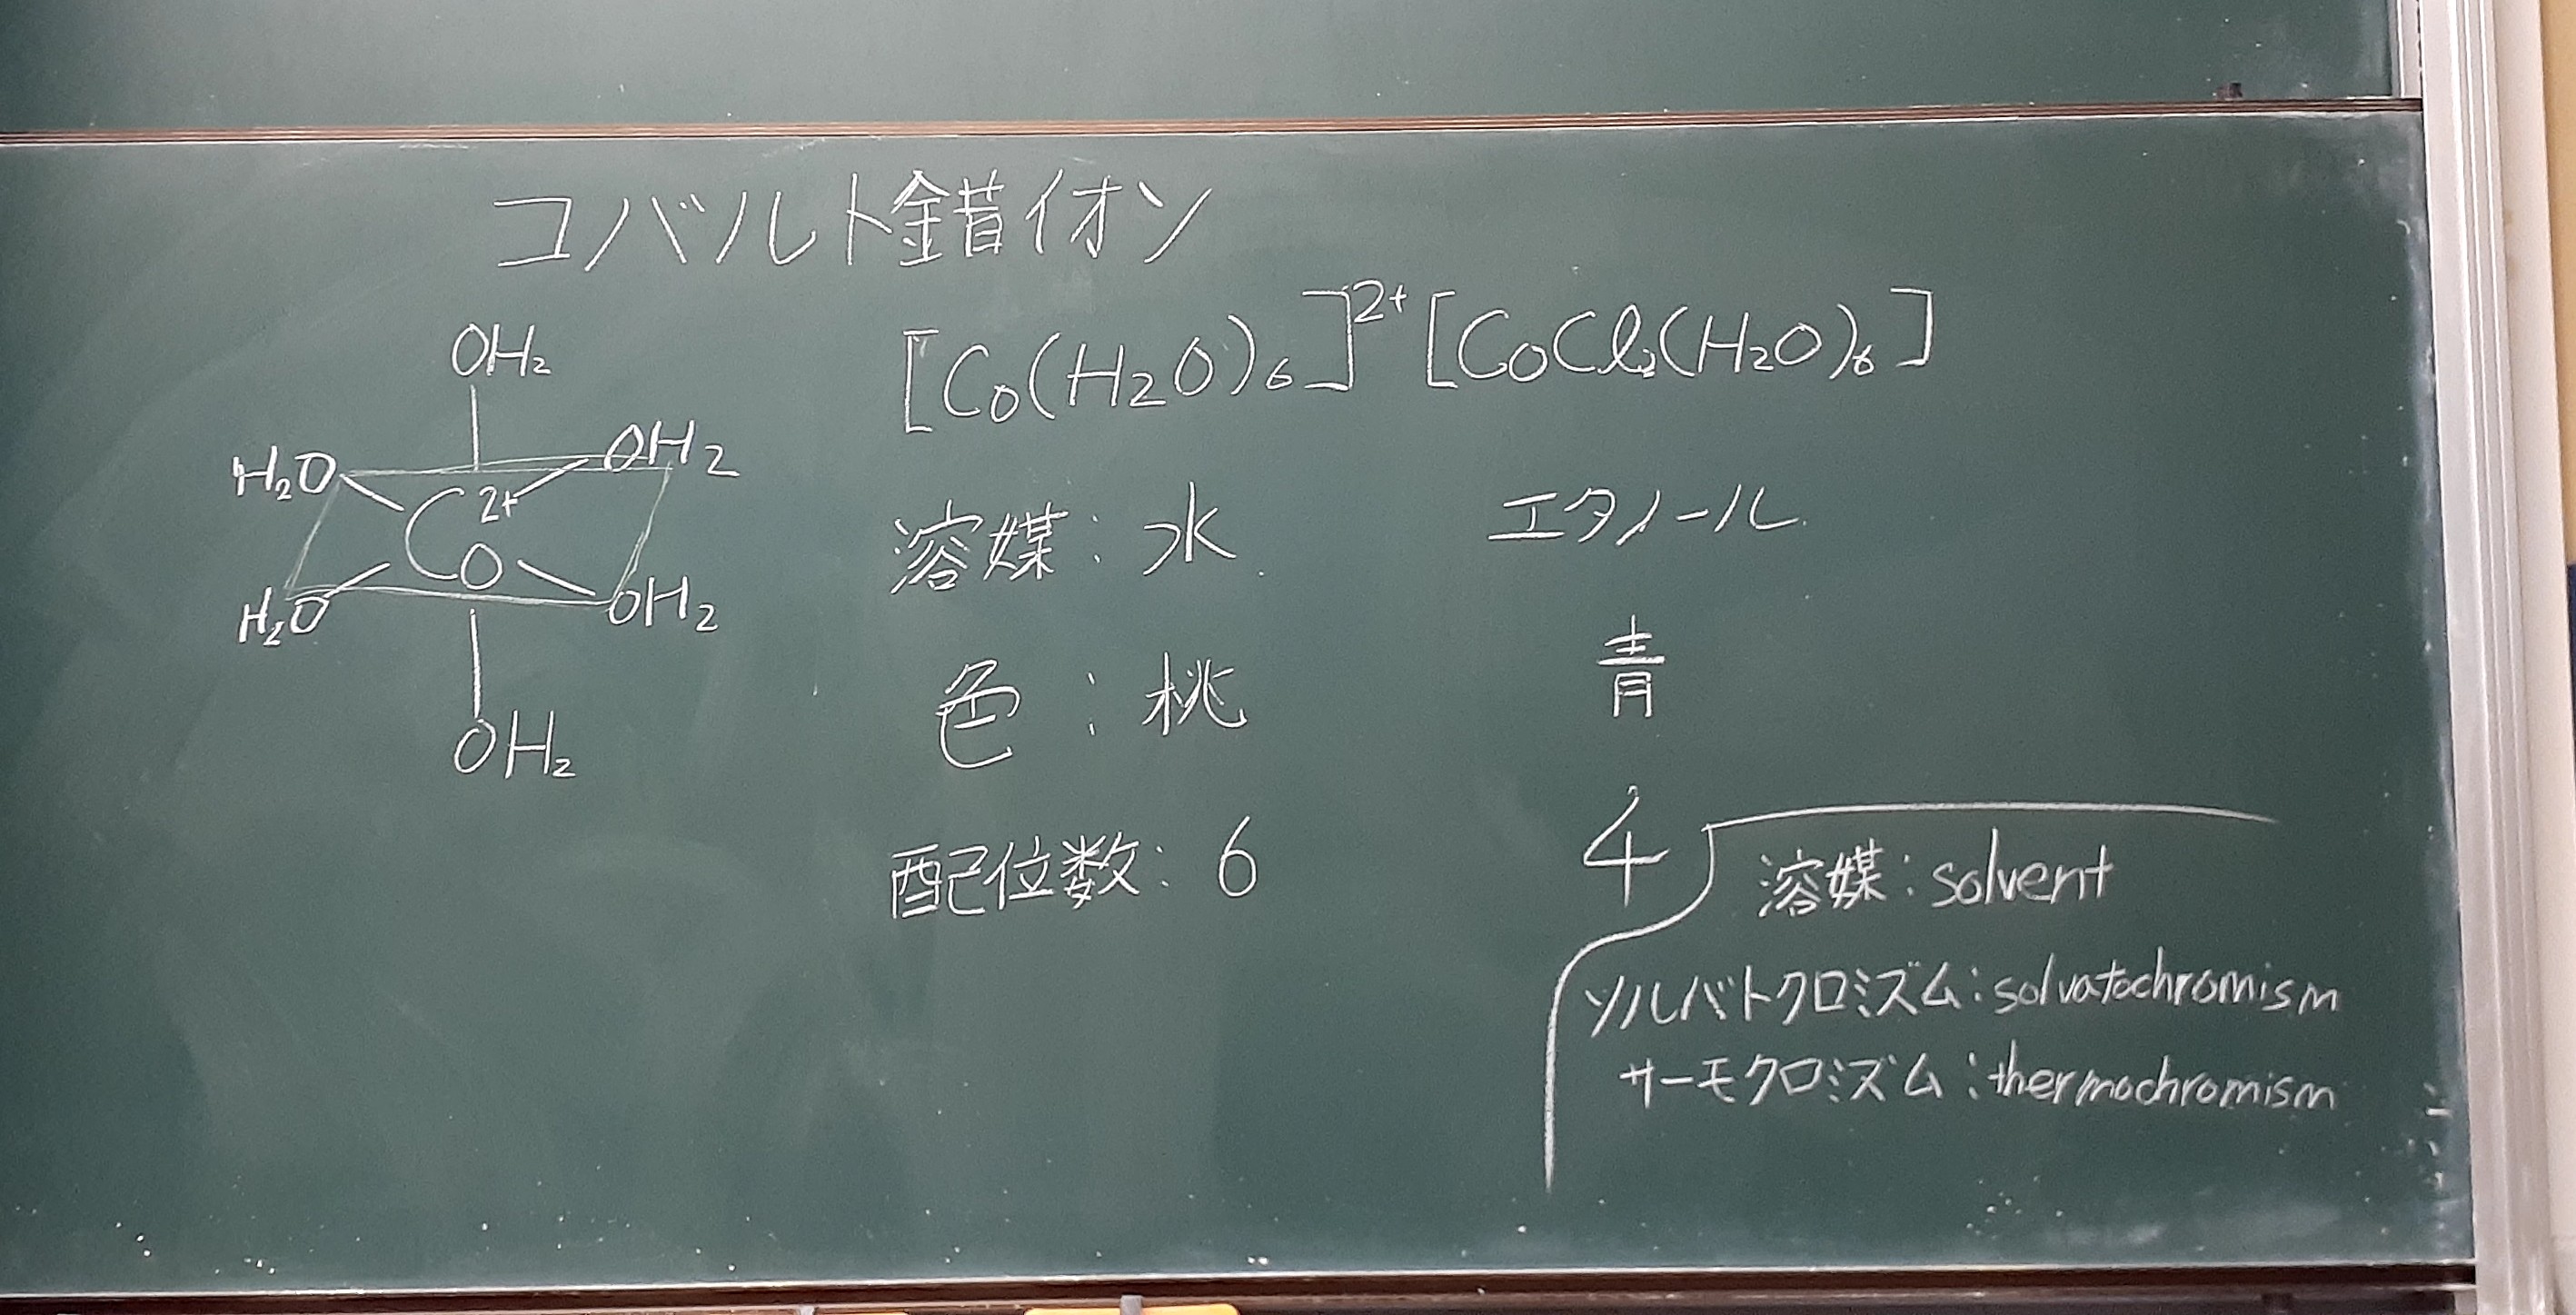 コバルト錯イオン
[Co(H₂O)₆]²⁺ [CoCl₂(H₂O)₆]
OH₂
H₂O OH₂
Co²⁺
H₂O OH₂
OH₂
溶媒:水 エタノール
色:桃 青
配位数:6 4
溶媒:solvent
ソルバトクロミズム:solvatochromism
サーモクロミズム:thermochromism